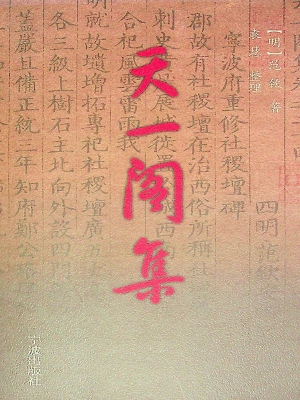 天一阁集
[明] 范钦 著
袁慧 整理
四明范欽
寧波府重修社稷壇碑
郡故有社稷壇在治西俗所稱社
刺史
展城徙置
城西
合祀風雲雷雨我
明就故壝增拓專祀社稷壇廣五
各三級上樹石主北向外設四
蓋嚴且備正統三年知府鄭公
宁波出版社